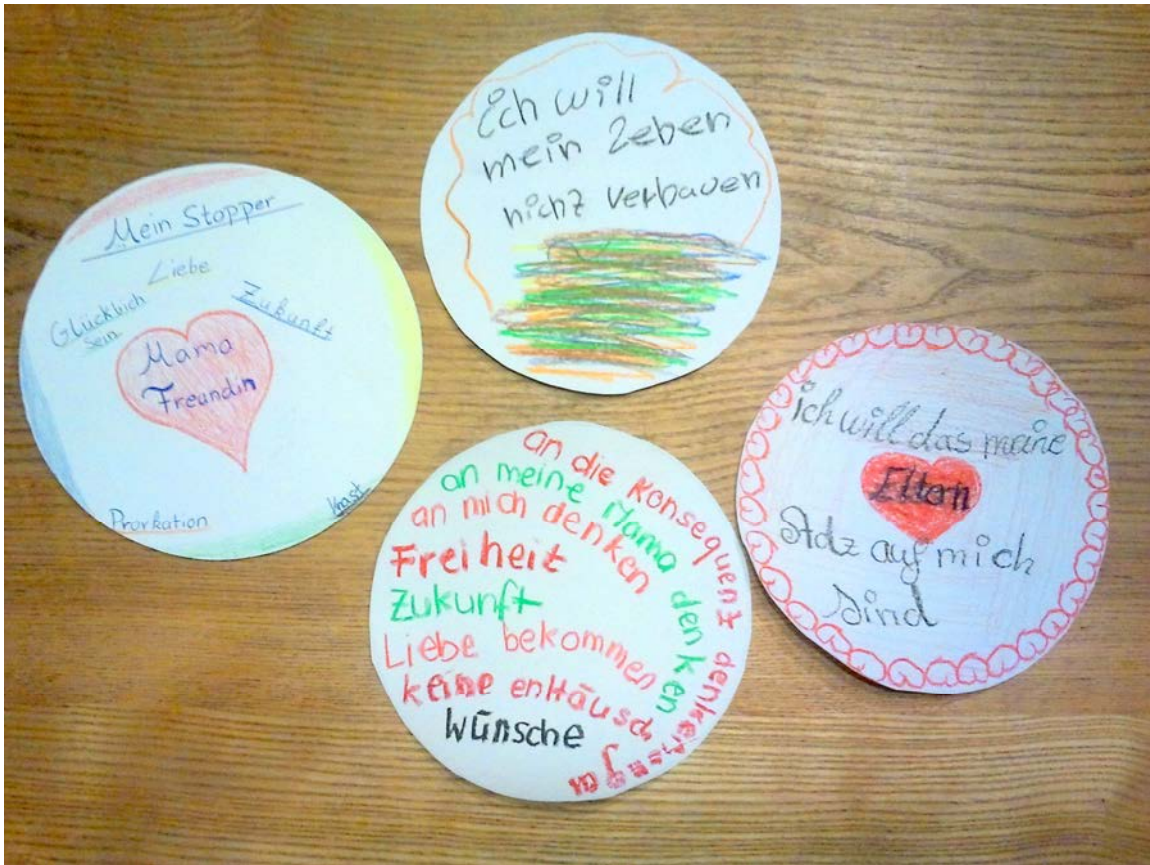 Mein Stopper
Liebe
Glücklich
sein
Zukunft
Mama
Freundin
Provkation
Knast
ich will
mein Leben
nicht verbauen
an die Konsequenz denken
an meine Mama denken
an mich denken
Freiheit
Zukunft
Liebe bekommen
keine enttäuschungen
Wünsche
ich will das meine
Eltern
Stolz auf mich
sind